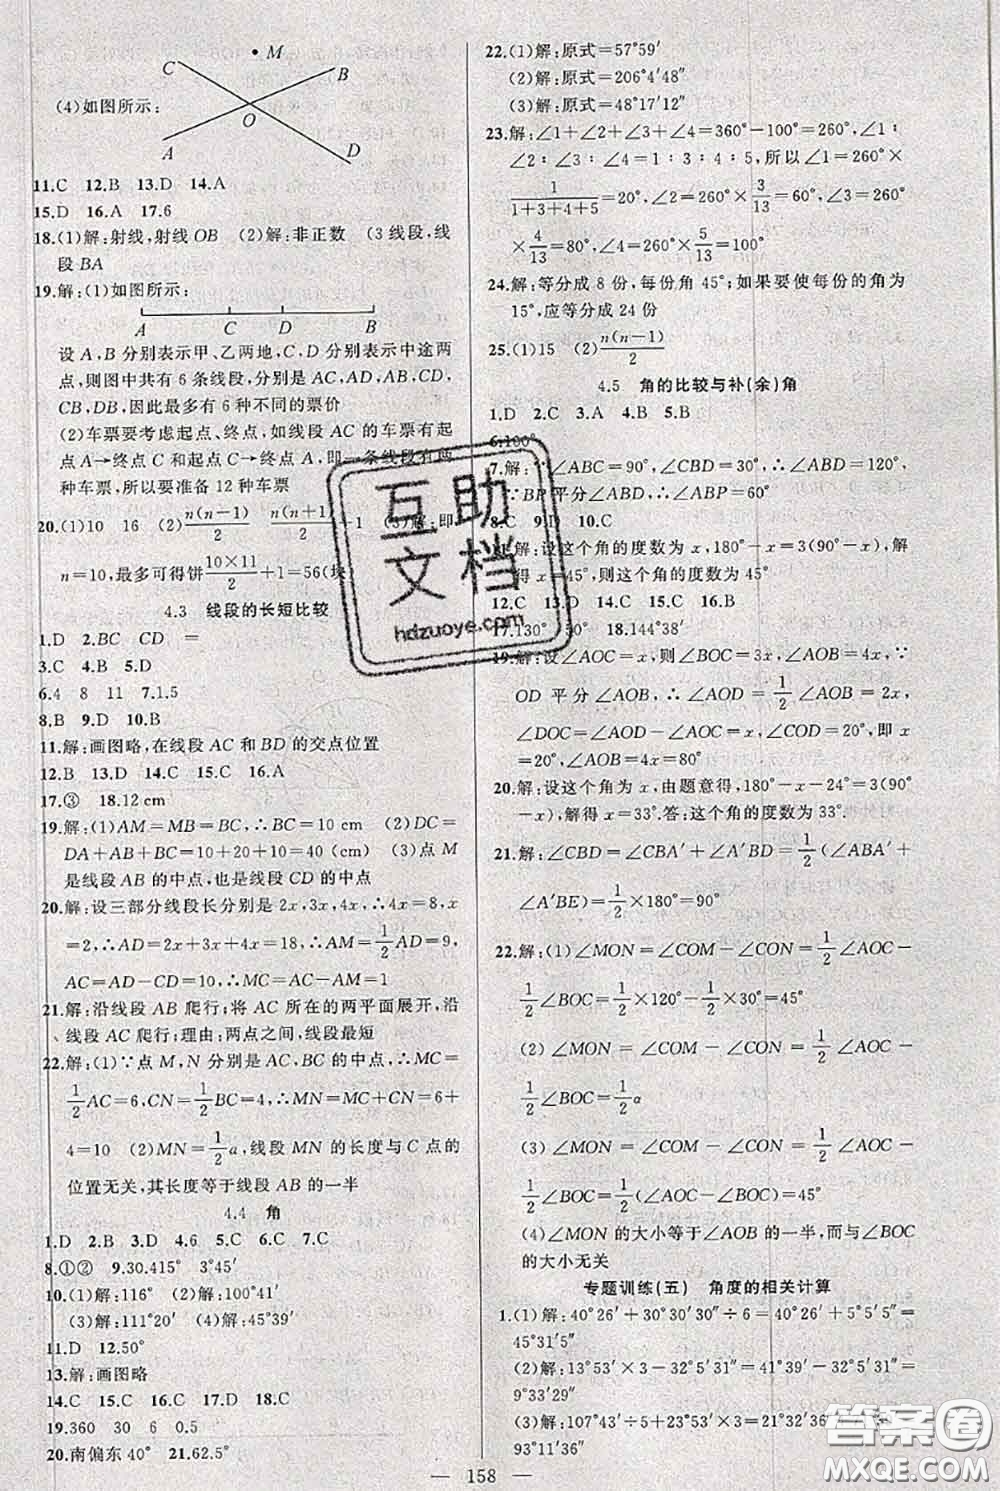 C
• M
B
(4)如图所示:
O
A
D
11.C 12.B 13.D 14.A
15.D 16.A 17.6
18.(1)解:射线,射线OB (2)解:非正数 (3 线段,线
段 BA
19.解:(1)如图所示:
A C D B
设 A,B 分别表示甲、乙两地,C,D 分别表示中途两
点,则图中共有 6 条线段,分别是 AC,AD,AB,CD,
CB,DB,因此最多有 6 种不同的票价
(2)车票要考虑起点、终点,如线段 AC 的车票有起
点 A→终点 C 和起点 C→终点 A,即一条线段有两
种车票,所以要准备 12 种车票
20.(1)10 16 (2) n(n−1)/2 n(n+1)/2 +1 (3)解:即
n=10,最多可得饼 10×11/2 +1=56(块
4.3 线段的长短比较
1.D 2.BC CD =
3.C 4.B 5.D
6.4 8 11 7.1.5
8.B 9.D 10.B
11.解:画图略,在线段 AC 和 BD 的交点位置
12.B 13.D 14.C 15.C 16.A
17.③ 18.12 cm
19.解:(1)AM=MB=BC,∴BC=10 cm (2)DC=
DA+AB+BC=10+20+10=40(cm) (3)点 M
是线段 AB 的中点,也是线段 CD 的中点
20.解:设三部分线段长分别是 2x,3x,4x,∴4x=8,
x=2,∴AD=2x+3x+4x=18,∴AM=1/2AD=9,
AC=AD−CD=10,∴MC=AC−AM=1
21.解:沿线段 AB 爬行;将 AC 所在的两平面展开,沿
线段 AC 爬行;理由:两点之间,线段最短
22.解:(1)∵点 M,N 分别是 AC,BC 的中点,∴MC=
1/2AC=6,CN=1/2BC=4,∴MN=MC+CN=6+
4=10 (2)MN=1/2a,线段 MN 的长度与 C 点的
位置无关,其长度等于线段 AB 的一半
4.4 角
1.D 2.B 3.D 4.6 5.C 6.C 7.C
8.①② 9.30.415° 3°45′
10.(1)解:116° (2)解:100°41′
(3)解:111°20′ (4)解:45°39′
11.D 12.50°
13.解:画图略
14.C 15.C 16.C 17.D 18.C
19.360 30 6 0.5
20.南偏东 40° 21.62.5°
22.(1)解:原式=57°59′
(2)解:原式=206°4′48″
(3)解:原式=48°17′12″
23.解:∠1+∠2+∠3+∠4=360°−100°=260°,∠1∶
∠2∶∠3∶∠4=1∶3∶4∶5,所以∠1=260°×
1/(1+3+4+5)=20°,∠2=260°×3/13=60°,∠3=260°
×4/13=80°,∠4=260°×5/13=100°
24.解:等分成 8 份,每份角 45°;如果要使每份的角为
15°,应等分成 24 份
25.(1)15 (2) n(n−1)/2
4.5 角的比较与补(余)角
1.D 2.C 3.A 4.B 5.B
6.100°
7.解:∵∠ABC=90°,∠CBD=30°,∴∠ABD=120°,
∵BP 平分∠ABD,∴∠ABP=60°
8.C 9.D 10.C
11.解:设这个角的度数为 x,180°−x=3(90°−x),解
得 x=45°,则这个角的度数为 45°
12.C 13.D 14.C 15.C 16.B
17.130° 50° 18.144°38′
19.解:设∠AOC=x,则∠BOC=3x,∠AOB=4x,∵
OD 平分∠AOB,∴∠AOD=1/2∠AOB=2x,
∠DOC=∠AOD−∠AOC=x,∵∠COD=20°,即 x
=20°,∴∠AOB=4x=80°
20.解:设这个角为 x,由题意得,180°−x−24°=3(90°
−x),解得:x=33°.答:这个角的度数为 33°.
21.解:∠CBD=∠CBA′+∠A′BD=1/2(∠ABA′+
∠A′BE)=1/2×180°=90°
22.解:(1)∠MON=∠COM−∠CON=1/2∠AOC−
1/2∠BOC=1/2×120°−1/2×30°=45°
(2)∠MON=∠COM−∠CON=1/2∠AOC−
1/2∠BOC=1/2α
(3)∠MON=∠COM−∠CON=1/2∠AOC−
1/2∠BOC=1/2(∠AOC−∠BOC)=45°
(4)∠MON 的大小等于∠AOB 的一半,而与∠BOC
的大小无关
专题训练(五) 角度的相关计算
1.(1)解:40°26′+30°30′30″÷6=40°26′+5°5′5″=
45°31′5″
(2)解:13°53′×3−32°5′31″=41°39′−32°5′31″=
9°33′29″
(3)解:107°43′÷5+23°53′×3=21°32′36″+71°39′=
93°11′36″
158
互助
文档
hdzuoye.com
答案圈
MXQE.COM